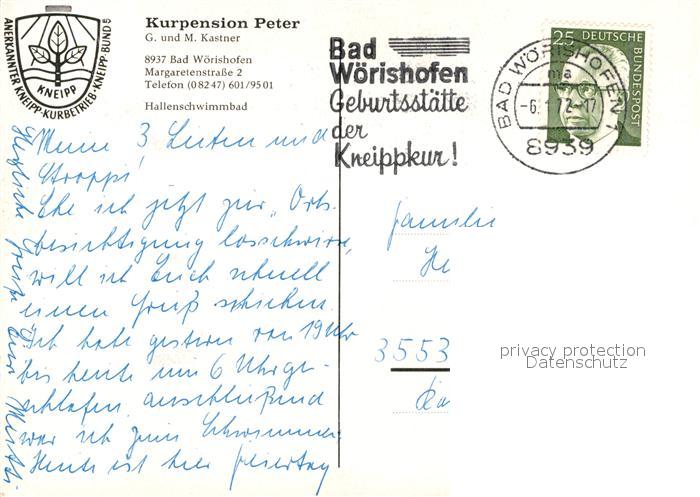 ANERKANNTER KNEIPP-KURBETRIEB · KNEIPP-BUND
KNEIPP
Kurpension Peter
G. und M. Kastner
8937 Bad Wörishofen
Margaretenstraße 2
Telefon (0 82 47) 601/95 01
Hallenschwimmbad
Bad
Wörishofen
Geburtsstätte
der
Kneippkur!
BAD WÖRISHOFEN 1
ma
8939
25
DEUTSCHE
BUNDESPOST
Meine 3 Lieben und
Stroppi!
Ehe ich jetzt zur "Orts-
besichtigung losschwirre,
will ich Euch schnell
einen Gruß schicken.
Ich habe gestern von 19 Uhr
bis heute um 6 Uhr ge-
schlafen anschließend
war ich zum Schwimmen.
Heute ist hier Feiertag
Herzliche Grüße Eure
Familie
He
3553
privacy protection
Datenschutz